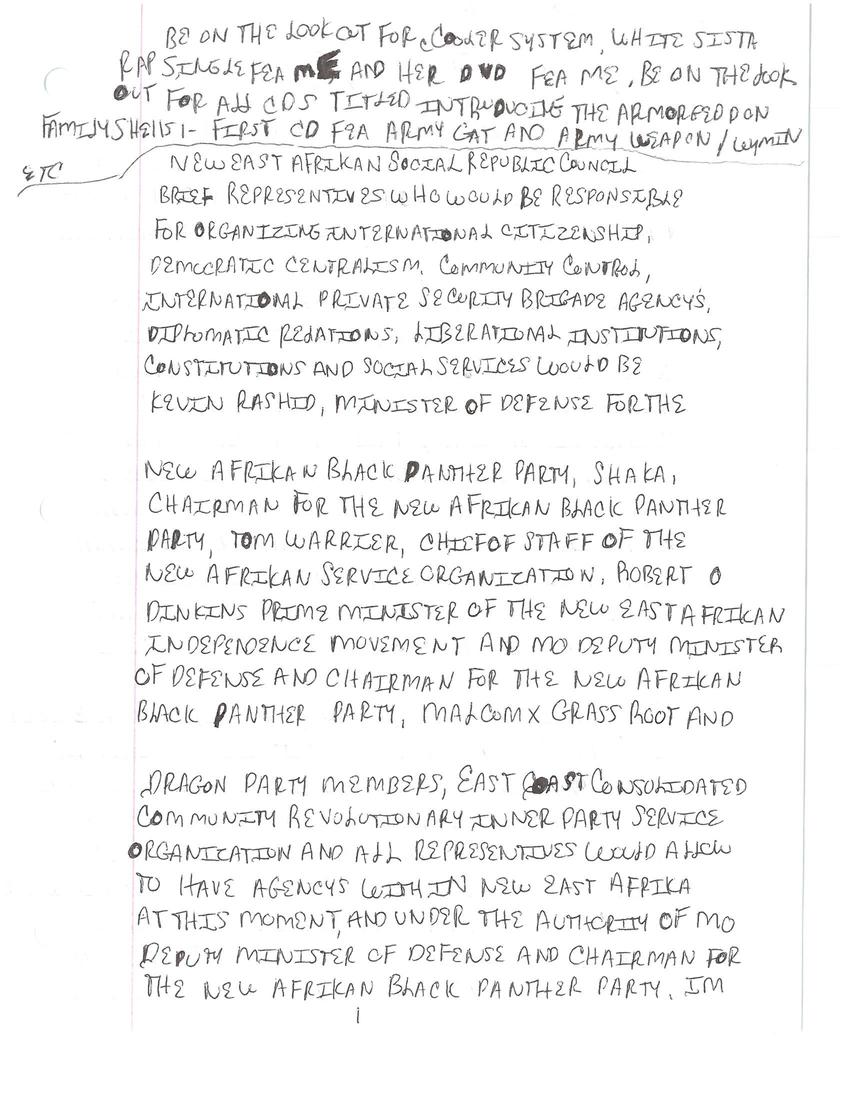 BE ON THE LOOK OUT FOR COOLER SYSTEM, WHITE SISTA
RAP SINGLE FEA ME AND HER DVD FEA ME, BE ON THE LOOK
OUT FOR ALL CDS TITLED INTRUDUCING THE ARMORGEDDON
FAMILY SHELLS 1- FIRST CD FEA ARMY GAT AND ARMY WEAPON/WYMIN
ETC
NEW EAST AFRIKAN SOCIAL REPUBLIC COUNCIL
BRIEF REPRESENTIVES WHO WOULD BE RESPONSIBLE
FOR ORGANIZING INTERNATIONAL CITIZENSHIP,
DEMOCRATIC CENTRALISM, COMMUNITY CONTROL,
INTERNATIONAL PRIVATE SECURITY BRIGADE AGENCY'S,
DIPLOMATIC RELATIONS, LIBERATIONAL INSTITUTIONS,
CONSTITUTIONS AND SOCIAL SERVICES WOULD BE
KEVIN RASHID, MINISTER OF DEFENSE FOR THE
NEW AFRIKAN BLACK PANTHER PARTY, SHAKA,
CHAIRMAN FOR THE NEW AFRIKAN BLACK PANTHER
PARTY, TOM WARRIER, CHIEF OF STAFF OF THE
NEW AFRIKAN SERVICE ORGANIZATION, ROBERT O
DINKINS PRIME MINISTER OF THE NEW EAST AFRIKAN
INDEPENDENCE MOVEMENT AND MO DEPUTY MINISTER
OF DEFENSE AND CHAIRMAN FOR THE NEW AFRIKAN
BLACK PANTHER PARTY, MALCOM X GRASS ROOT AND
DRAGON PARTY MEMBERS, EAST COAST CONSOLIDATED
COMMUNITY REVOLUTIONARY INNER PARTY SERVICE
ORGANIZATION AND ALL REPRESENTIVES WOULD ALLOW
TO HAVE AGENCYS WITHIN NEW EAST AFRIKA
AT THIS MOMENT, AND UNDER THE AUTHORITY OF MO
DEPUTY MINISTER OF DEFENSE AND CHAIRMAN FOR
THE NEW AFRIKAN BLACK PANTHER PARTY, IM
i